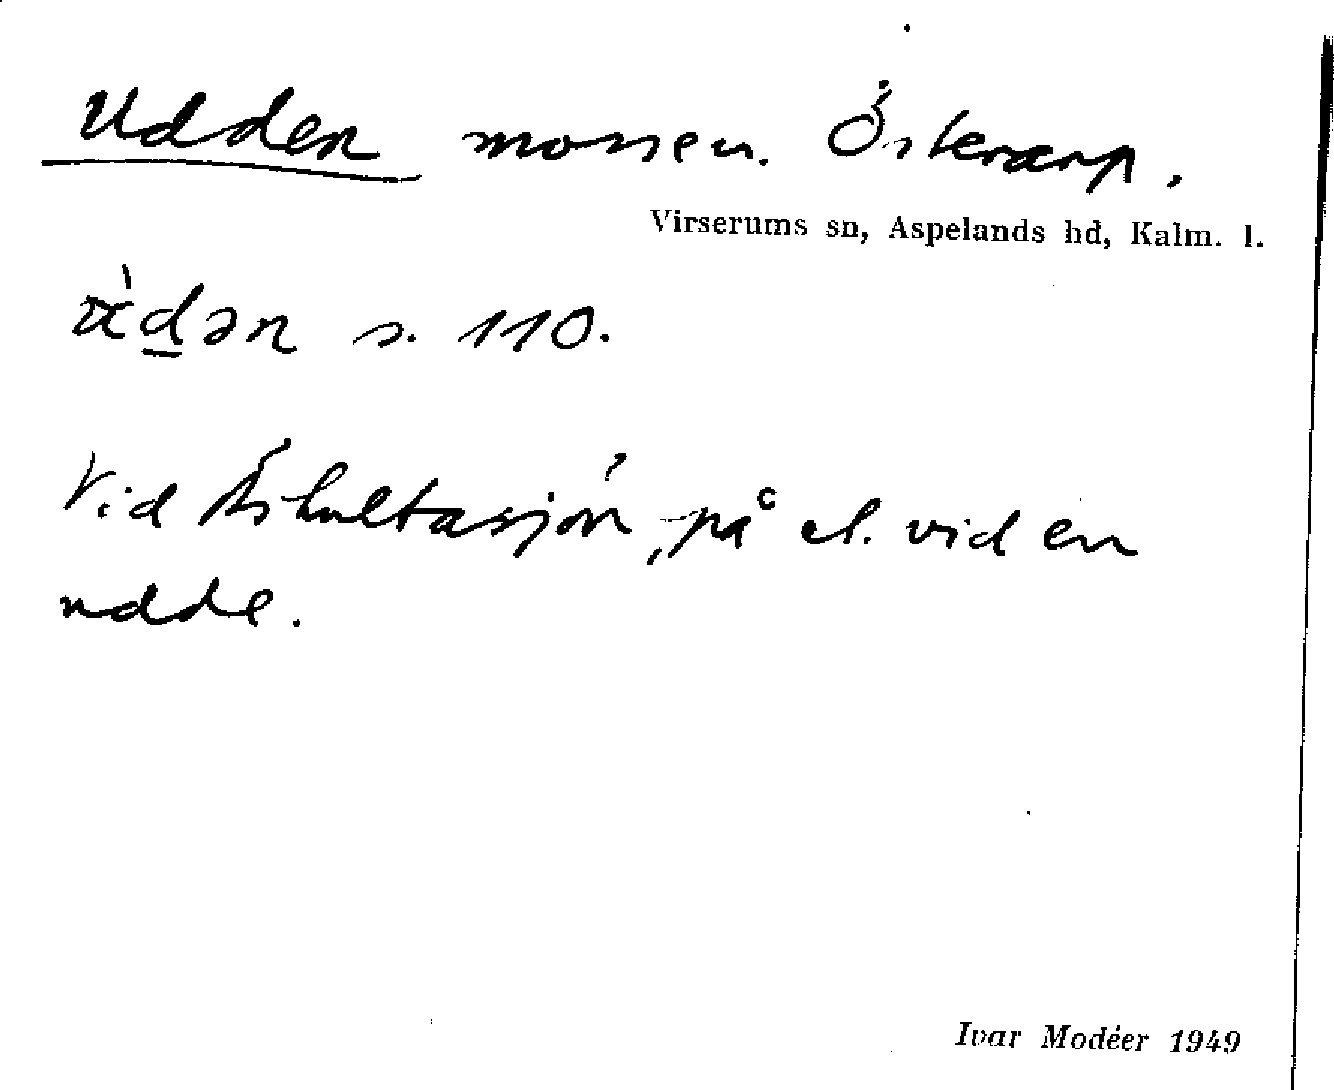 Udden mossen. Österarp.
Virserums sn, Aspelands hd, Kalm. l.
s. 110.
Vid Åshultasjön, på el. vid en
udde.
Ivar Modéer 1949